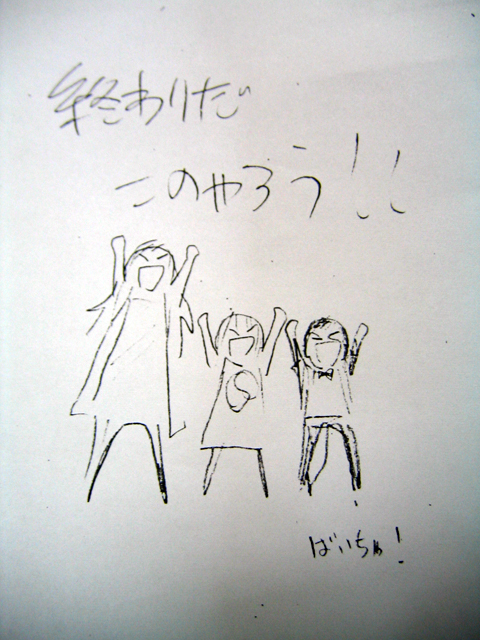 終わりだ
このやろう!!
ばいちゅ!